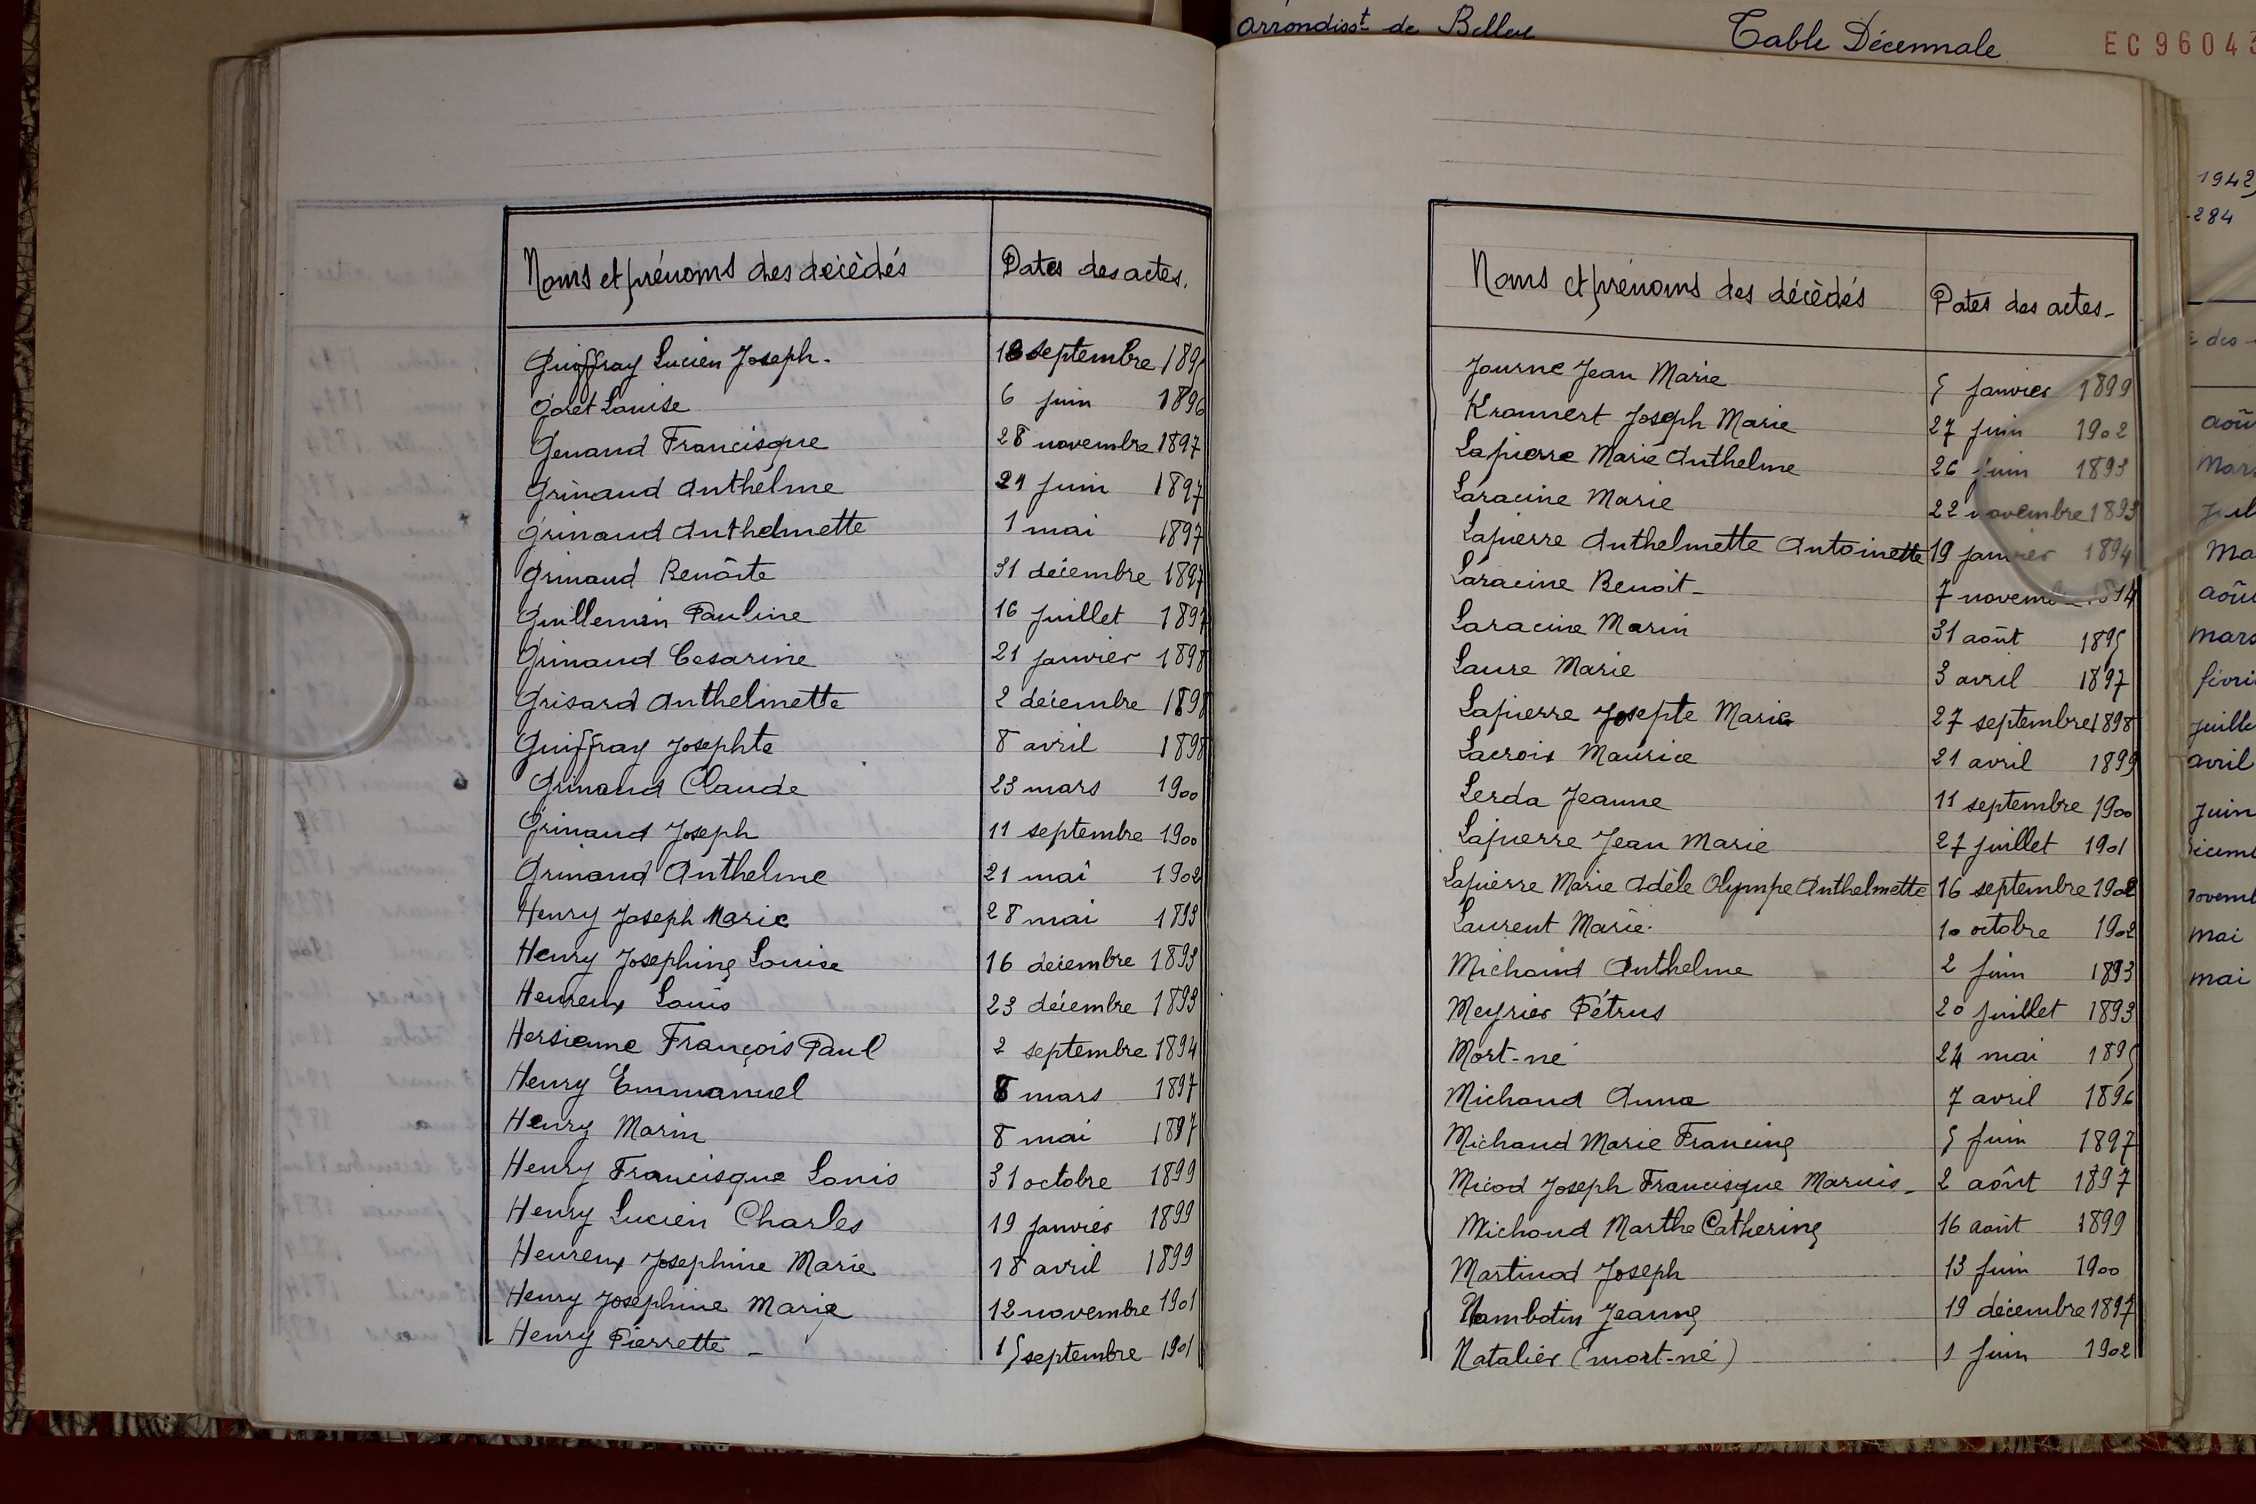 arrondisst de Belley Table Décennale EC 96043
1942
284
Noms et prénoms des décèdés Dates des actes.
Guiffray Lucien Joseph. septembre 189
Goret Louise 6 juin 1896
Genand Francisque 28 novembre 1897
Grinand Anthelme 21 juin 1897
Grinand Anthelmette 1 mai 1897
Grinand Benoîte 31 décembre 1897
Guillemin Pauline 16 juillet 1897
Grinand Cesarine 21 janvier 1898
Grisard Anthelmette 2 décembre 1898
Guiffray Josephte 8 avril 1898
Grinand Claude 23 mars 1900
Grinand Joseph 11 septembre 1900
Grinand Anthelme 21 mai 1902
Henry Joseph Marie 28 mai 1893
Henry Josephine Louise 16 décembre 1893
Heureux Louis 23 décembre 1893
Hersienne François Paul 2 septembre 1894
Henry Emmanuel 8 mars 1897
Henry Marin 8 mai 1897
Henry Francisque Louis 31 octobre 1899
Henry Lucien Charles 19 janvier 1899
Heureux Josephine Marie 18 avril 1899
Henry Josephine Marie 12 novembre 1901
Henry Pierrette _ 15 septembre 1901
Noms et prénoms des décèdés Dates des actes_
Journe Jean Marie 5 janvier 1899
Krannert Joseph Marie 27 juin 1902
Lapierre Marie Anthelme 26 juin 1893
Laracine Marie 22 novembre 1893
Lapierre Anthelmette Antoinette 19 janvier 1894
Laracine Benoit_ 7 novem 1894
Laracine Marin 31 août 1895
Laure Marie 3 avril 1897
Lapierre Josepte Marie 27 septembre 1898
Lacroix Maurice 21 avril 1899
Lerda Jeanne 11 septembre 1900
Lapierre Jean Marie 27 juillet 1901
Lapierre Marie Adèle Olympe Anthelmette 16 septembre 1902
Laurent Marie. 10 octobre 1902
Michaud Anthelme 2 juin 1893
Meyrier Pétrus 20 juillet 1893
Mort-né 24 mai 1895
Michaud Anna 7 avril 1896
Michaud Marie Francine 5 juin 1897
Micod Joseph Francisque Marius_ 2 août 1897
Michoud Marthe Catherine 16 août 1899
Martinod Joseph 13 juin 1900
Nambotin Jeanne 19 décembre 1897
Natalier (mort-né) 1 juin 1902
des
aoû
Mars
juil
Ma
aoû
mars
févri
juille
avril
juin
écemb
novemb
mai
mai